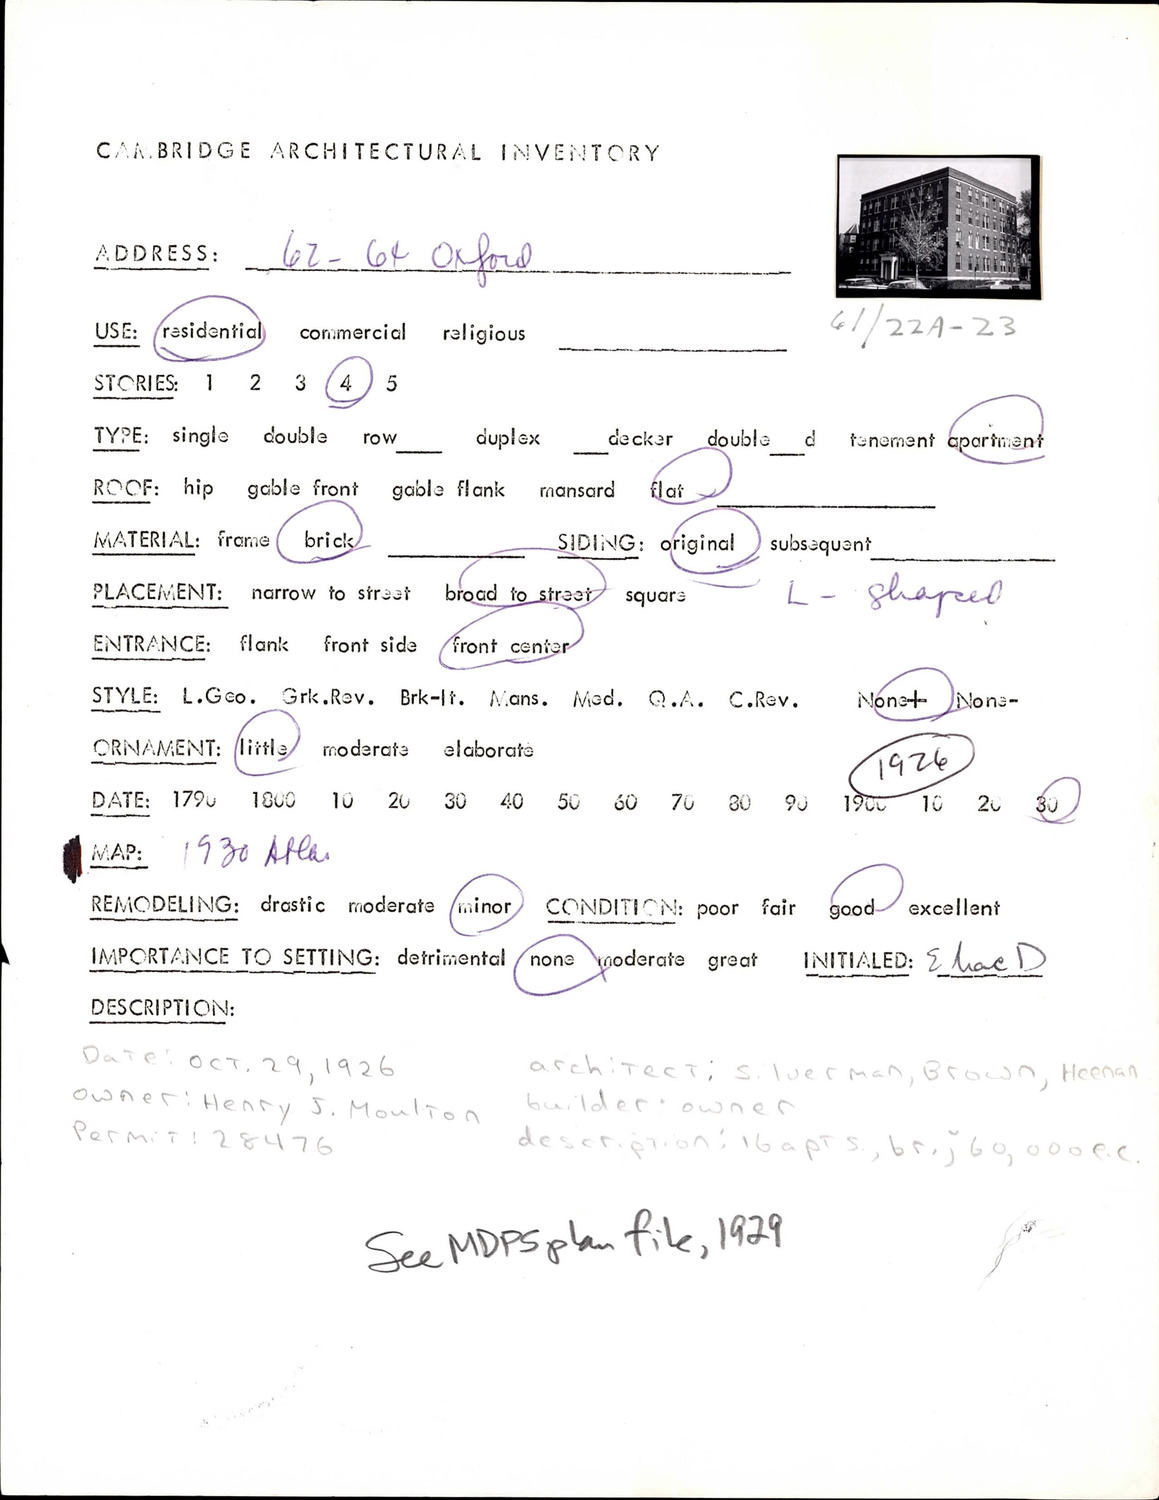 CAMBRIDGE ARCHITECTURAL INVENTORY
ADDRESS: 62-64 Oxford
61/22A-23
USE: residential commercial religious
STORIES: 1 2 3 4 5
TYPE: single double row___ duplex ___decker double___d tenement apartment
ROOF: hip gable front gable flank mansard flat
MATERIAL: frame brick SIDING: original subsequent
PLACEMENT: narrow to street broad to street square L - shaped
ENTRANCE: flank front side front center
STYLE: L.Geo. Grk.Rev. Brk-It. Mans. Med. Q.A. C.Rev. None+ None-
ORNAMENT: little moderate elaborate
1926
DATE: 1790 1800 10 20 30 40 50 60 70 80 90 1900 10 20 30
MAP: 1930 Atlas
REMODELING: drastic moderate minor CONDITION: poor fair good excellent
IMPORTANCE TO SETTING: detrimental none moderate great INITIALED:
DESCRIPTION:
Date: Oct. 29, 1926 architect: Silverman, Brown, Heenan
owner: Henry J. Moulton builder: owner
Permit: 28476 description: 16 apts., br., 60,000 e.c.
See MDPS plan file, 1929